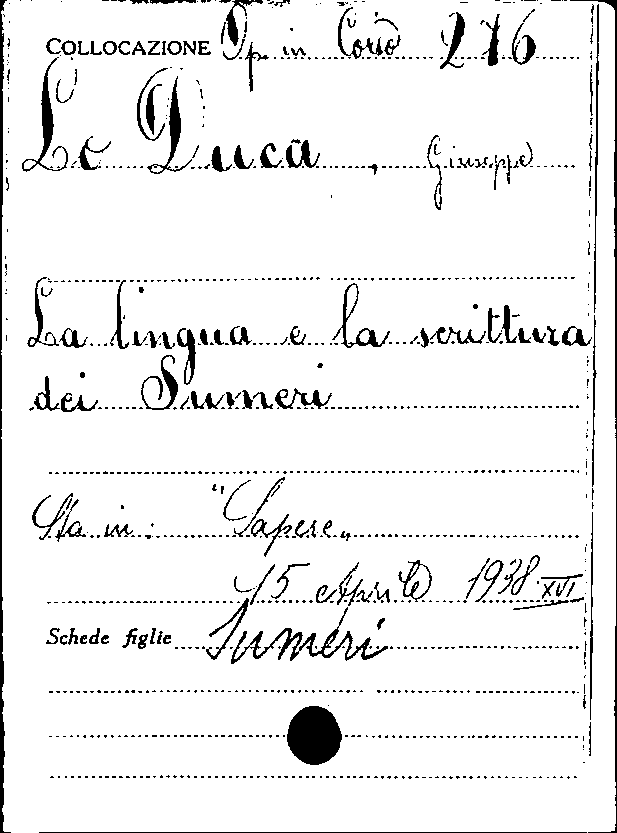 COLLOCAZIONE Op. in Corso 276
Lo Duca, Giuseppe
La lingua e la scrittura
dei Sumeri
Sta in: "Sapere„
15 Aprile 1938 XVI
Schede figlie Sumeri